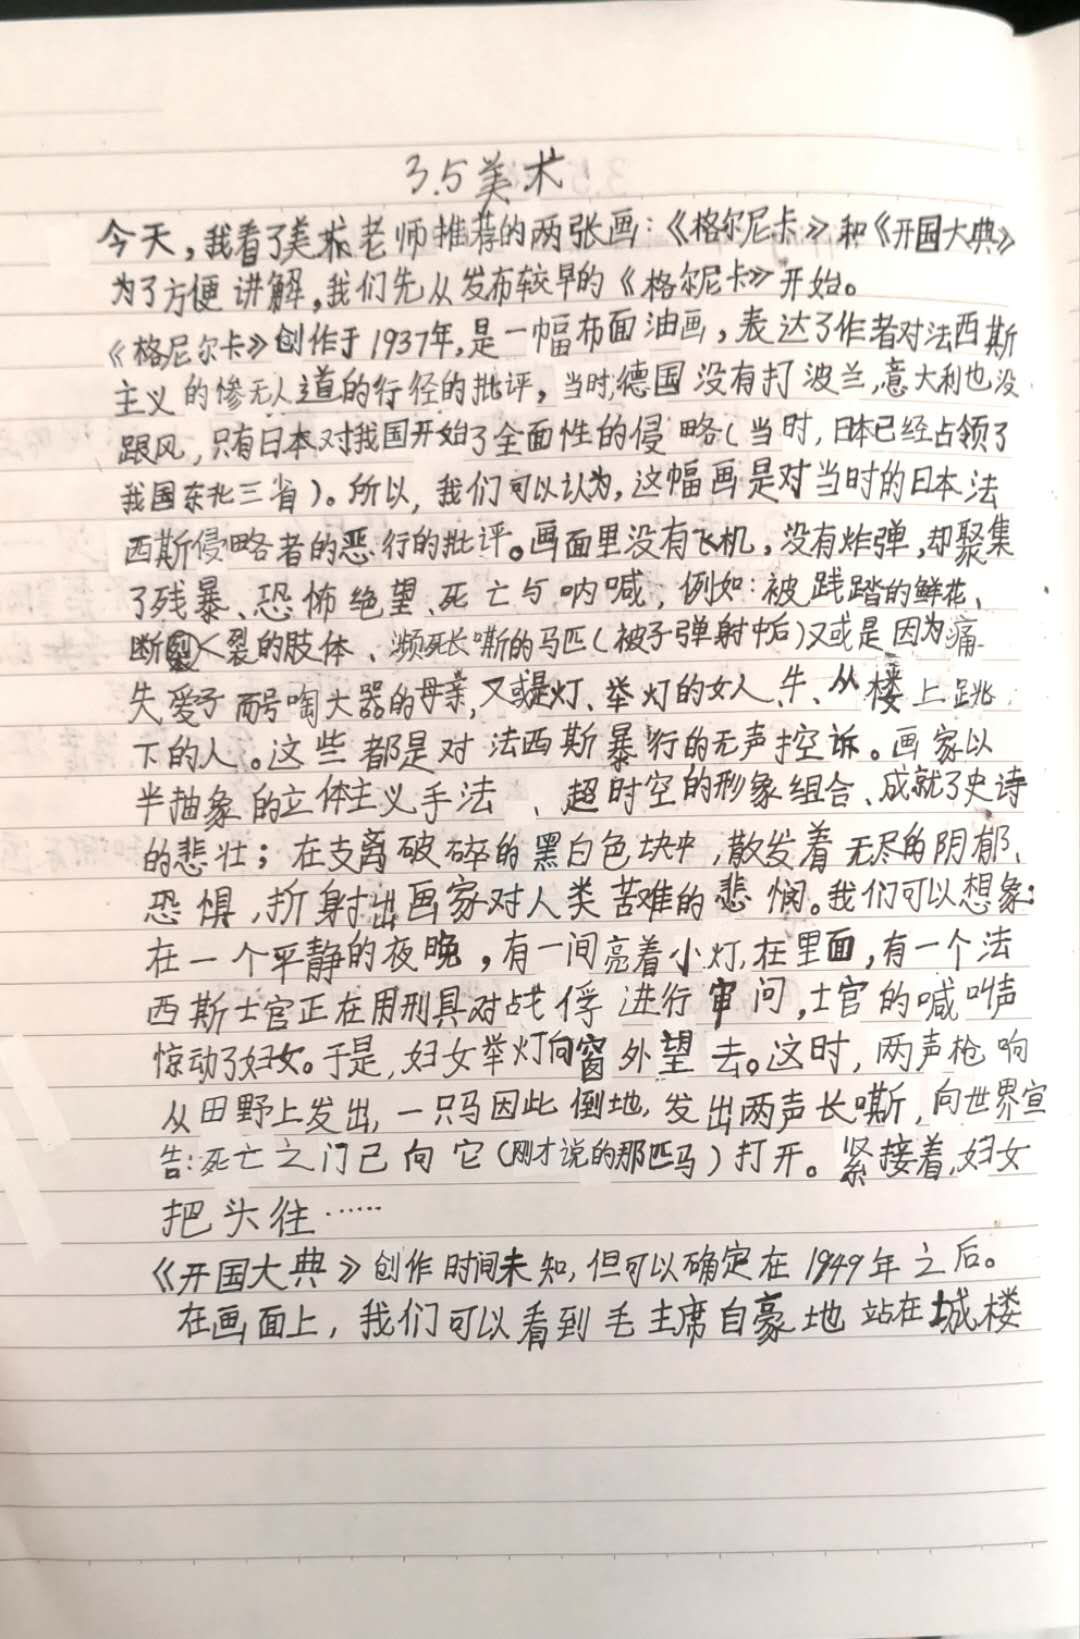 3.5美术
今天,我看了美术老师推荐的两张画:《格尔尼卡》和《开国大典》
为了方便讲解,我们先从发布较早的《格尔尼卡》开始。
《格尼尔卡》创作于1937年,是一幅布面油画,表达了作者对法西斯
主义的惨无人道的行径的批评,当时,德国没有打波兰,意大利也没
跟风,只有日本对我国开始了全面性的侵略(当时,日本已经占领了
我国东北三省)。所以,我们可以认为,这幅画是对当时的日本法
西斯侵略者的恶行的批评。画面里没有飞机,没有炸弹,却聚集
了残暴、恐怖绝望、死亡与呐喊,例如:被践踏的鲜花、
断裂的肢体、濒死长嘶的马匹(被子弹射中后)又或是因为痛
失爱子而号啕大器的母亲,又或是灯、举灯的女人、牛、从楼上跳
下的人。这些都是对法西斯暴行的无声控诉。画家以
半抽象的立体主义手法、超时空的形象组合、成就了史诗
的悲壮;在支离破碎的黑白色块中,散发着无尽的阴郁、
恐惧,折射出画家对人类苦难的悲悯。我们可以想象:
在一个平静的夜晚,有一间亮着小灯,在里面,有一个法
西斯士官正在用刑具对战俘进行审问,士官的喊叫声
惊动了妇女。于是,妇女举灯向窗外望去。这时,两声枪响
从田野上发出,一只马因此倒地,发出两声长嘶,向世界宣
告:死亡之门已向它(刚才说的那匹马)打开。紧接着,妇女
把头往……
《开国大典》创作时间未知,但可以确定在1949年之后。
在画面上,我们可以看到毛主席自豪地站在城楼